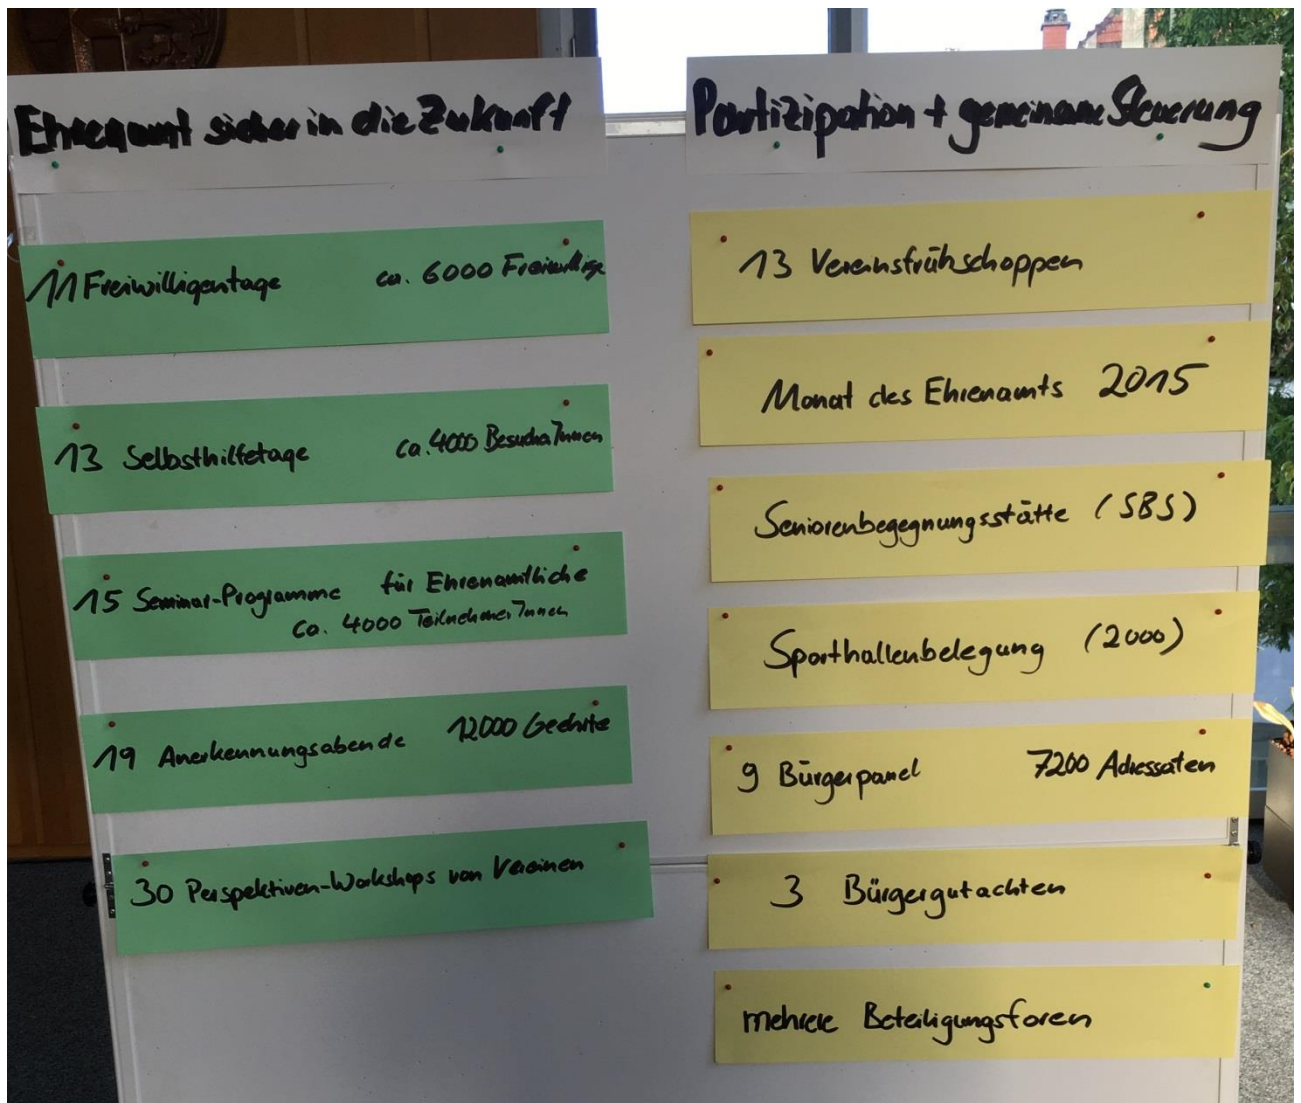 Ehrenamt sicher in die Zukunft
11 Freiwilligentage ca. 6000 Freiwillige
13 Selbsthilfetage ca. 4000 BesucherInnen
15 Seminar-Programme für Ehrenamtliche
ca. 4000 TeilnehmerInnen
19 Anerkennungsabende 12000 Geehrte
30 Perspektiven-Workshops von Vereinen
Partizipation + gemeinsame Steuerung
13 Vereinsfrühschoppen
Monat des Ehrenamts 2015
Seniorenbegegnungsstätte (SBS)
Sporthallenbelegung (2000)
9 Bürgerpanel 7200 Adressaten
3 Bürgergutachten
mehrere Beteiligungsforen